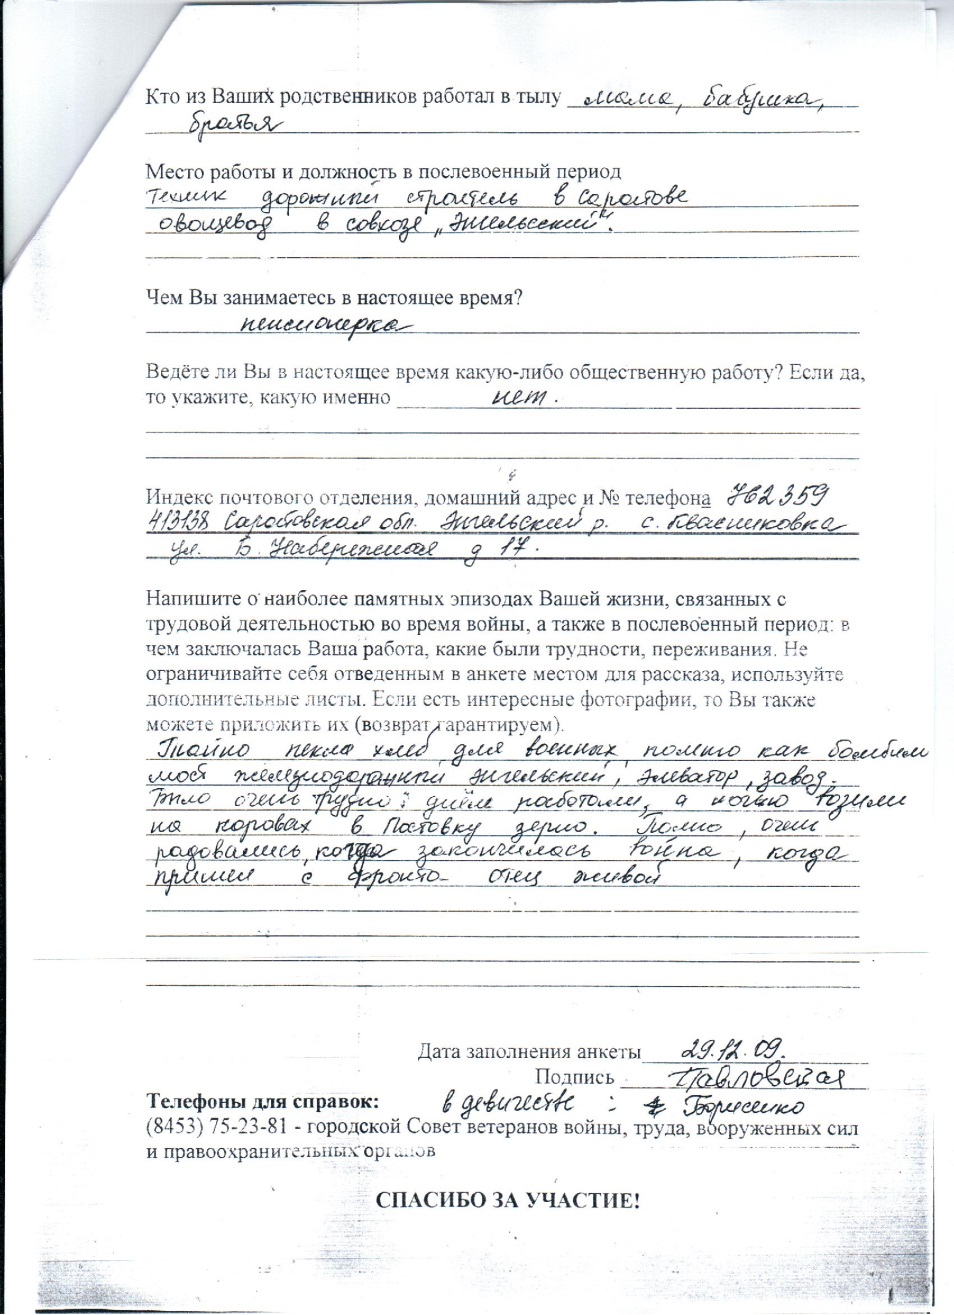 Кто из Ваших родственников работал в тылу мама, бабушка,
братья
Место работы и должность в послевоенный период
Техник дорожный строитель в Саратове
овощевод в совхозе „Энгельсский".
Чем Вы занимаетесь в настоящее время?
пенсионерка
Ведёте ли Вы в настоящее время какую-либо общественную работу? Если да,
то укажите, какую именно нет.
Индекс почтового отделения, домашний адрес и № телефона 762359
413138 Саратовская обл. Энгельский р. с. Квасниковка
ул. Б. Набережная д 17.
Напишите о наиболее памятных эпизодах Вашей жизни, связанных с
трудовой деятельностью во время войны, а также в послевоенный период: в
чем заключалась Ваша работа, какие были трудности, переживания. Не
ограничивайте себя отведенным в анкете местом для рассказа, используйте
дополнительные листы. Если есть интересные фотографии, то Вы также
можете приложить их (возврат гарантируем).
Тайно пекла хлеб для военных, помню как бомбили
мост железнодорожный энгельский, элеватор, завод.
Было очень трудно: днём работали, а ночью возили
на коровах в Покровку зерно. Помню, очен
радовались, когда закончилась война, когда
пришел с фронта отец живой
Дата заполнения анкеты 29.12.09.
Подпись Павловская
Телефоны для справок: в девичестве : Борисенко
(8453) 75-23-81 - городской Совет ветеранов войны, труда, вооруженных сил
и правоохранительных органов
СПАСИБО ЗА УЧАСТИЕ!